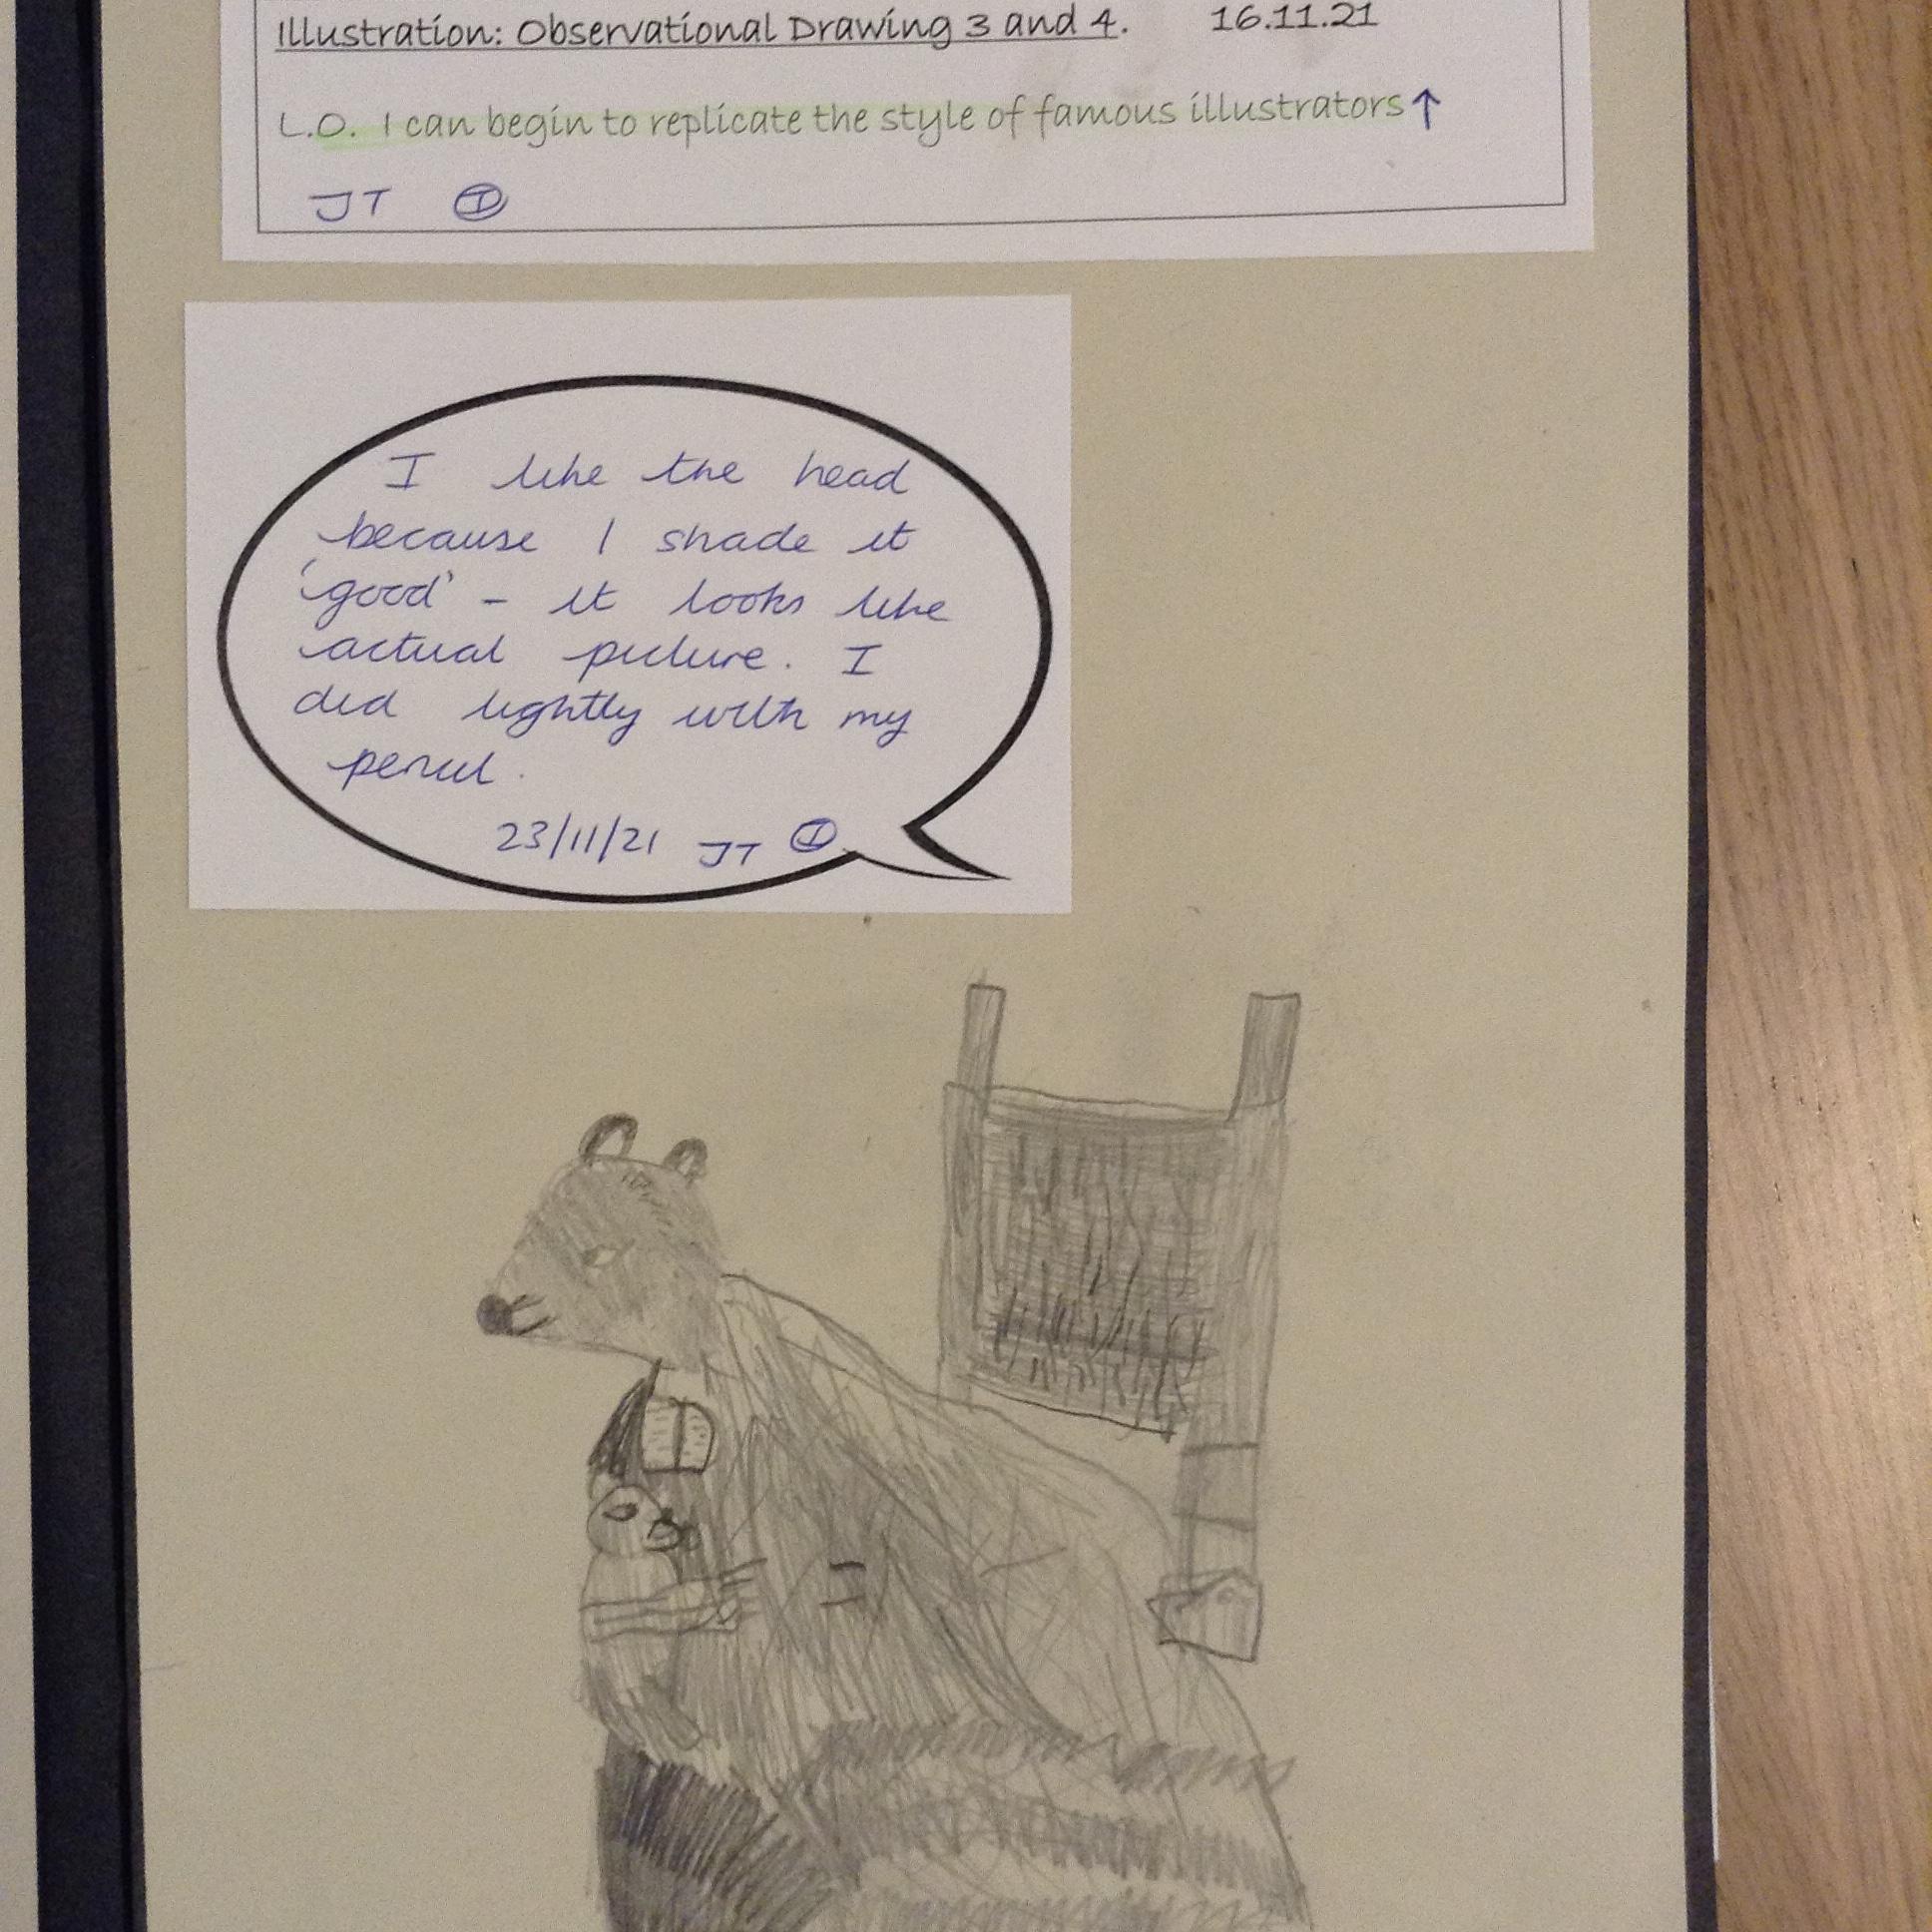 Illustration: Observational Drawing 3 and 4. 16.11.21
L.O. I can begin to replicate the style of famous illustrators↑
JT Ⓘ
I like the head
because I shade it
'good' - it looks like
actual picture. I
did lightly with my
pencil.
23/11/21 JT Ⓘ